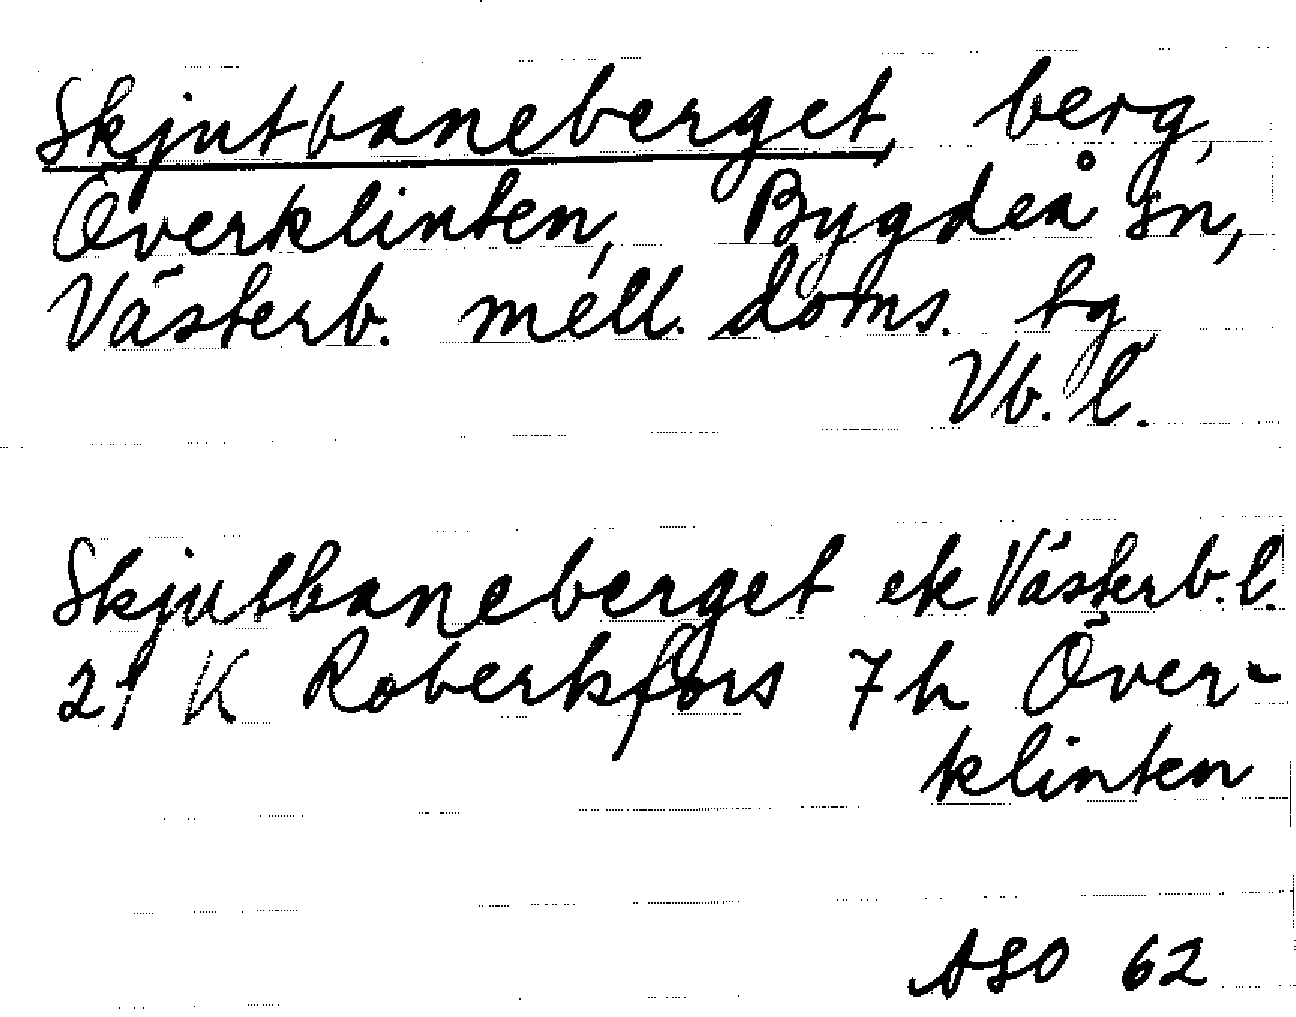 Skjutbaneberget, berg,
Överklinten, Bygdeå sn,
Västerb. mell. doms. tg
Vb. l.
Skjutbaneberget ek Västerb. l.
21 K Robertsfors 7 h Över-
klinten
ASO 62